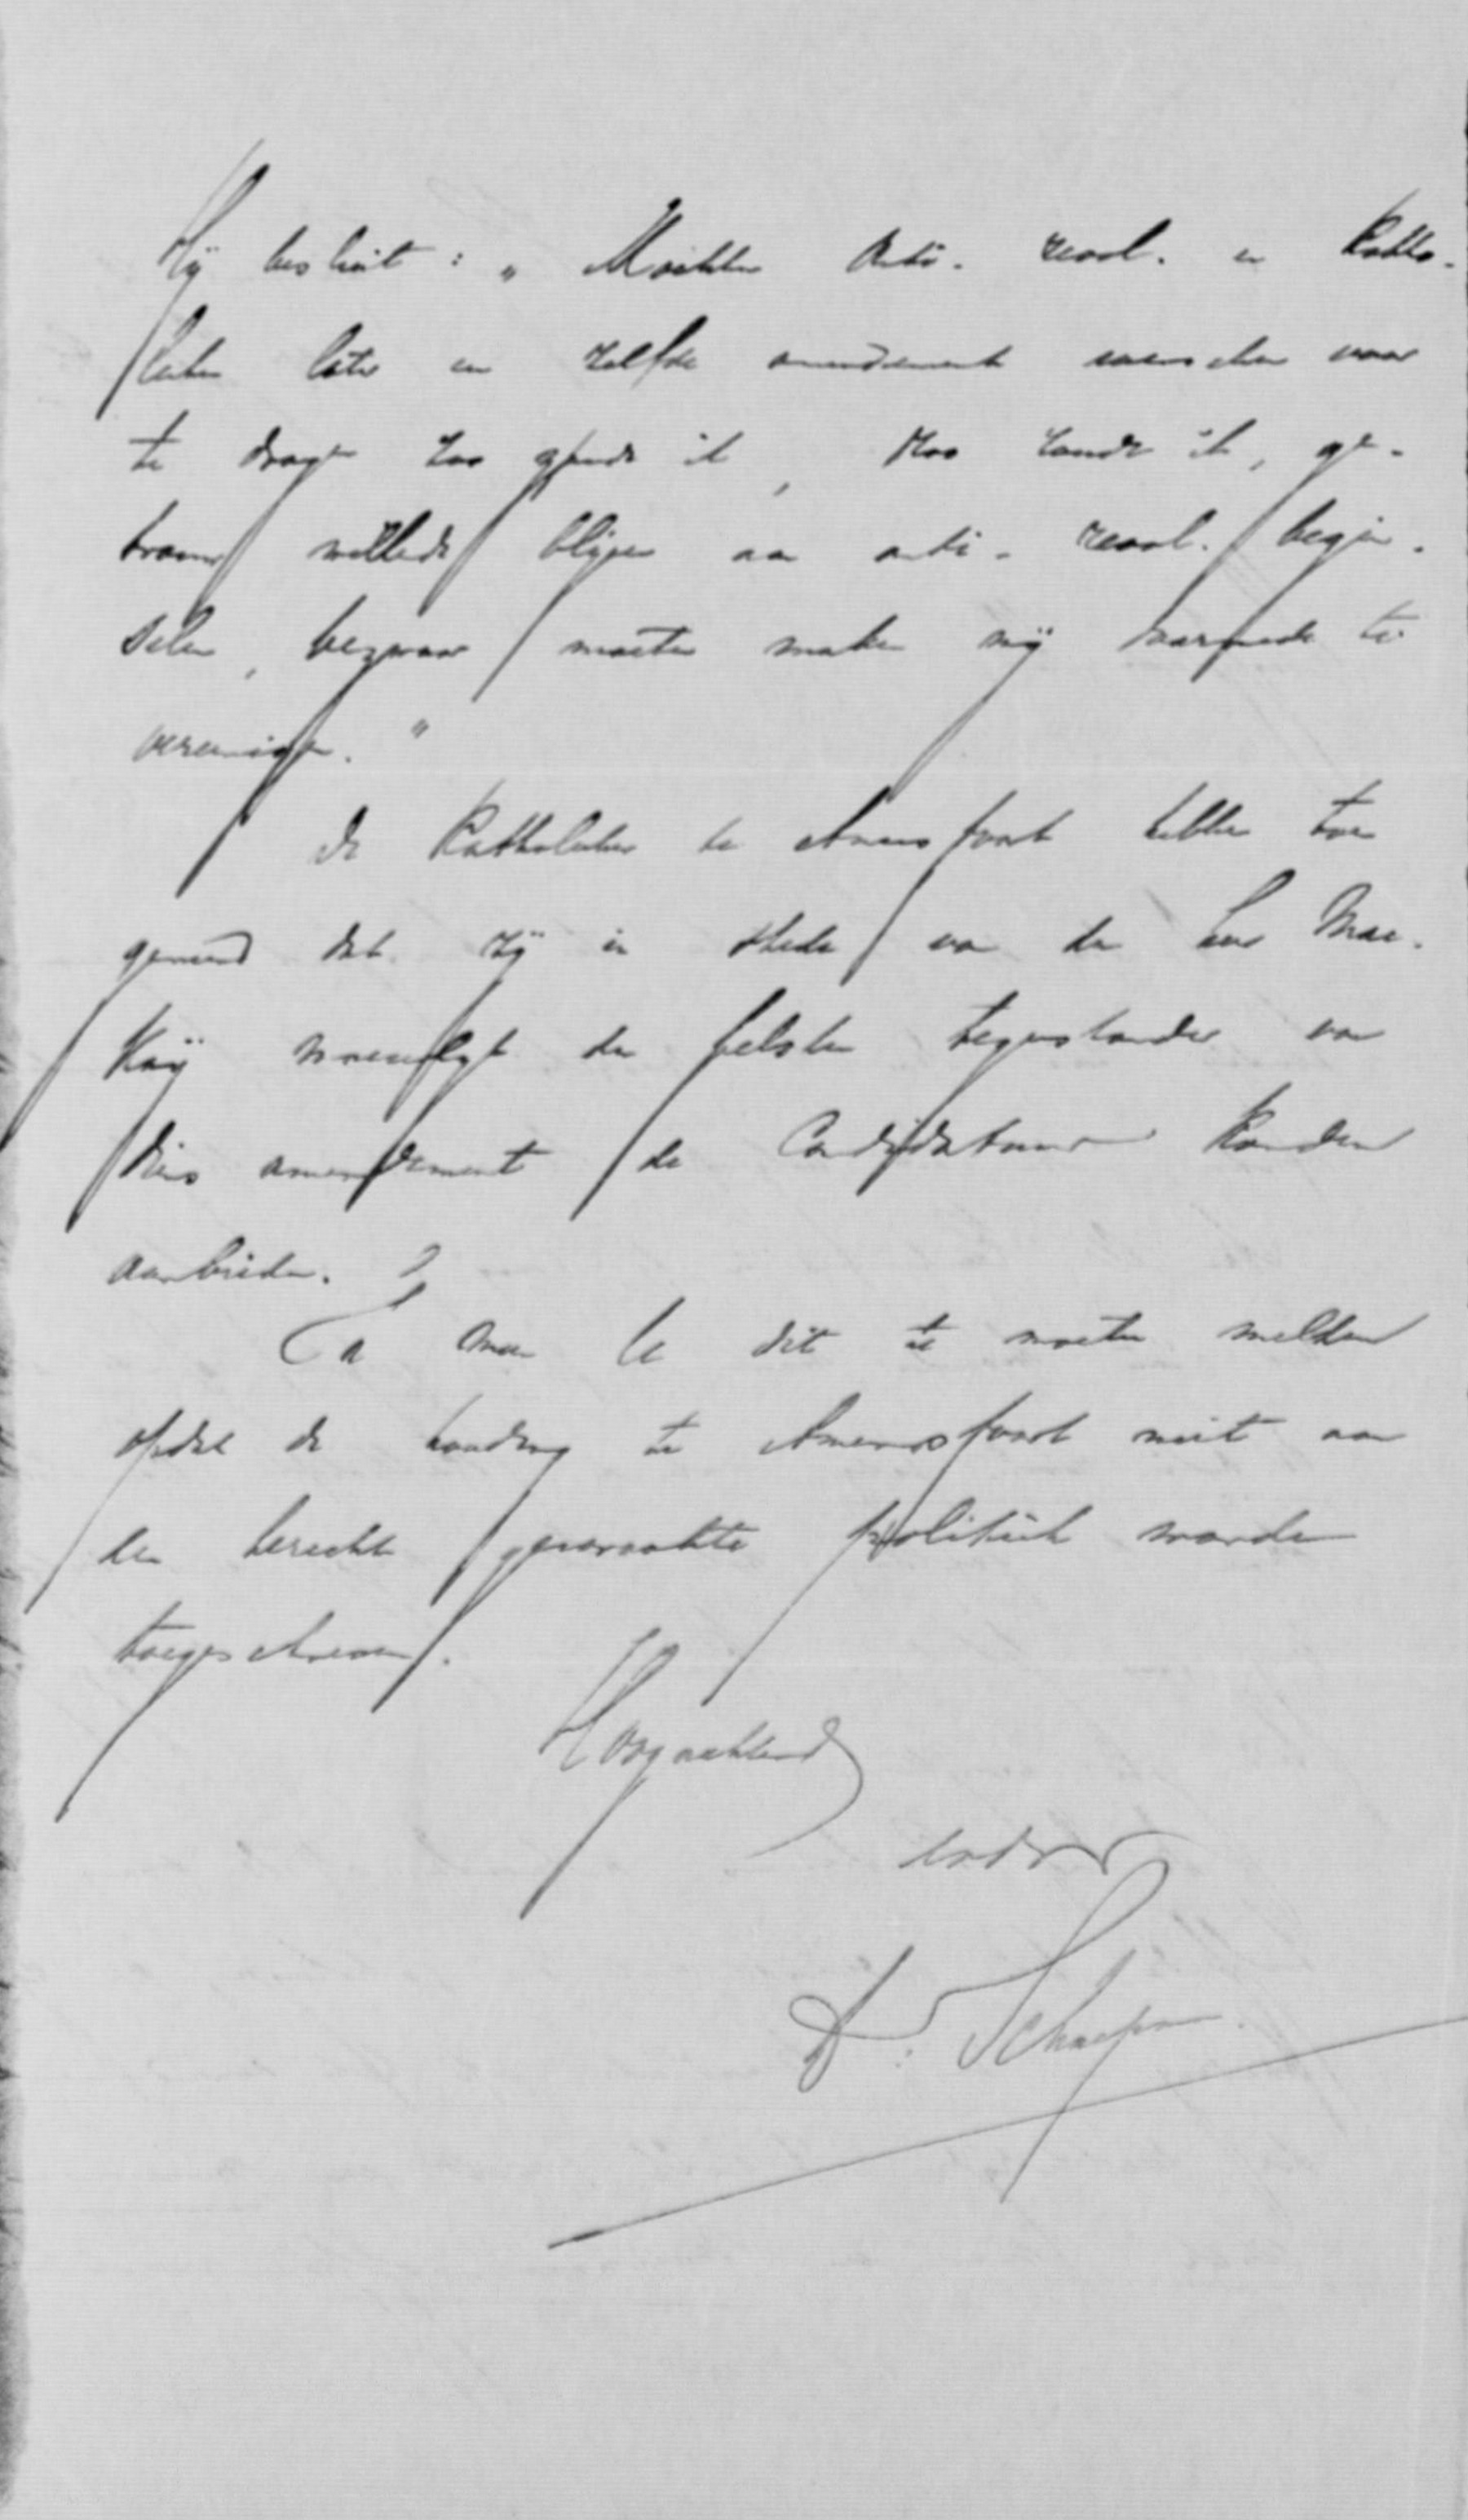 Hij besluit: „Mochten Anti-revol. en Katho-
lieken later een zelfde amendement wenschen voor
te dragen dan zoude ik, ge-
trouw willende blijven aan anti-revol. begin-
selen, bezwaar moeten maken mij daarmede te
vereenigen."
De Katholieken te Amersfoort hebben toen
gemeend dat zij in stede van den heer Mac-
kay moeielijk den felsten tegenstander van
dies amendement de Candidatuur konden
aanbieden.
Ik meen U dit te moeten melden
opdat de houding te Amersfoort niet aan
den berechte gewraakte politiek worde
toegeschreven.
Hoogachtend
Dr. Schaepman.